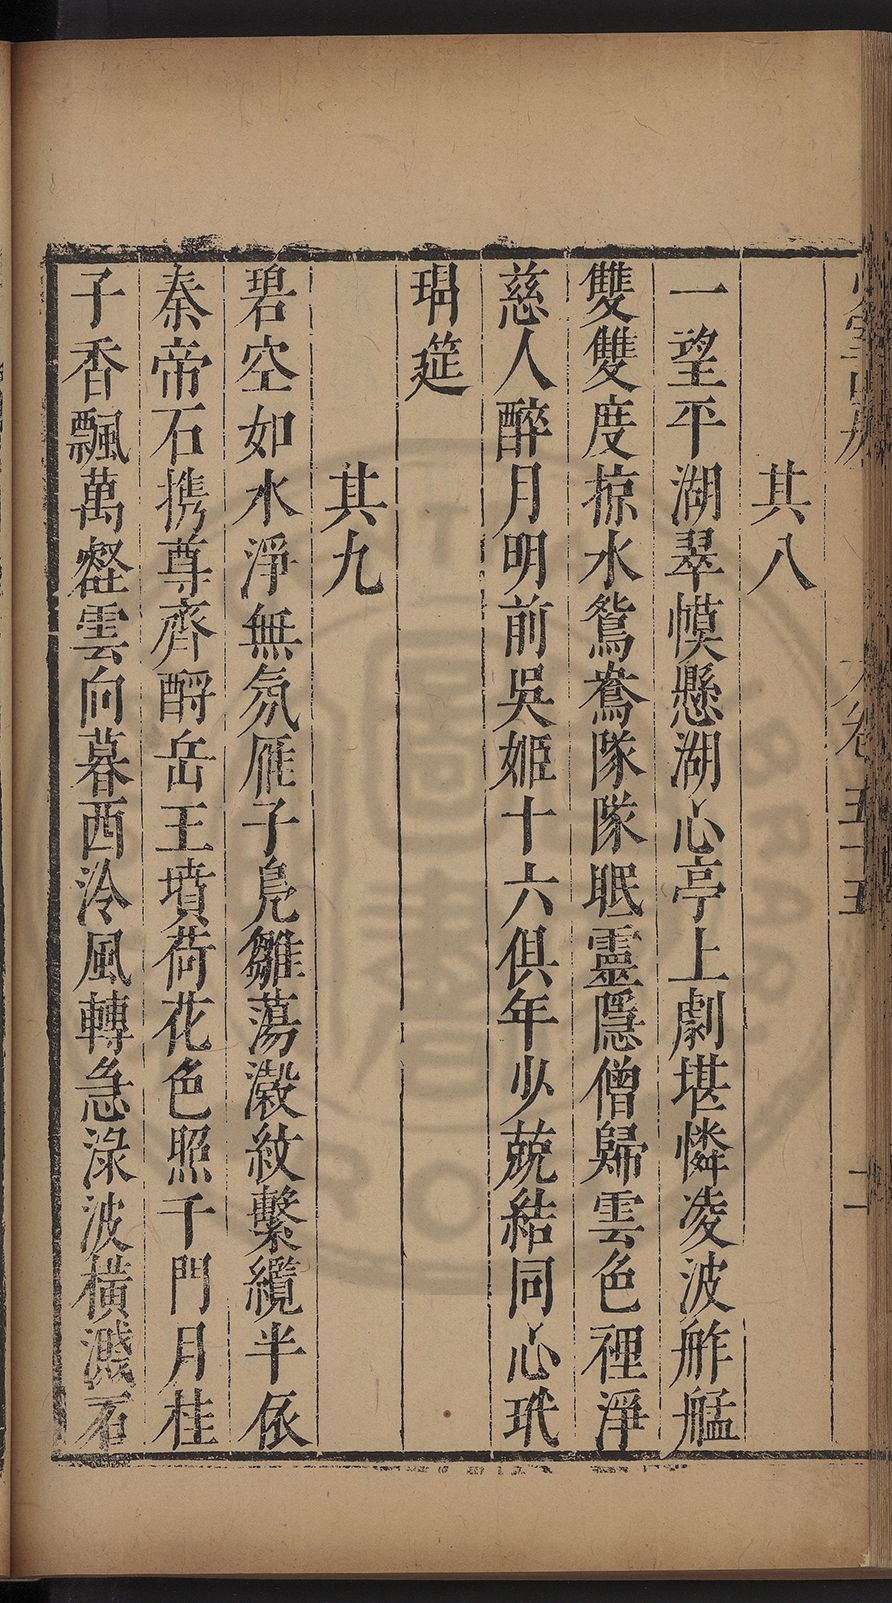 其八
一望平湖翠幙懸湖心亭上劇堪憐凌波舴艋
雙雙度掠水鴛鴦隊隊眠靈隱僧歸雲色裡淨
慈人醉月明前吳姬十六俱年少蔸結同心玳
瑁筵
其九
碧空如水淨無氛雁子鳧雛蕩瀫紋繫纜半依
秦帝石携尊齊酹岳王墳荷花色照千門月桂
子香飄萬壑雲向暮西泠風轉急淥波橫濺石
卷五十五